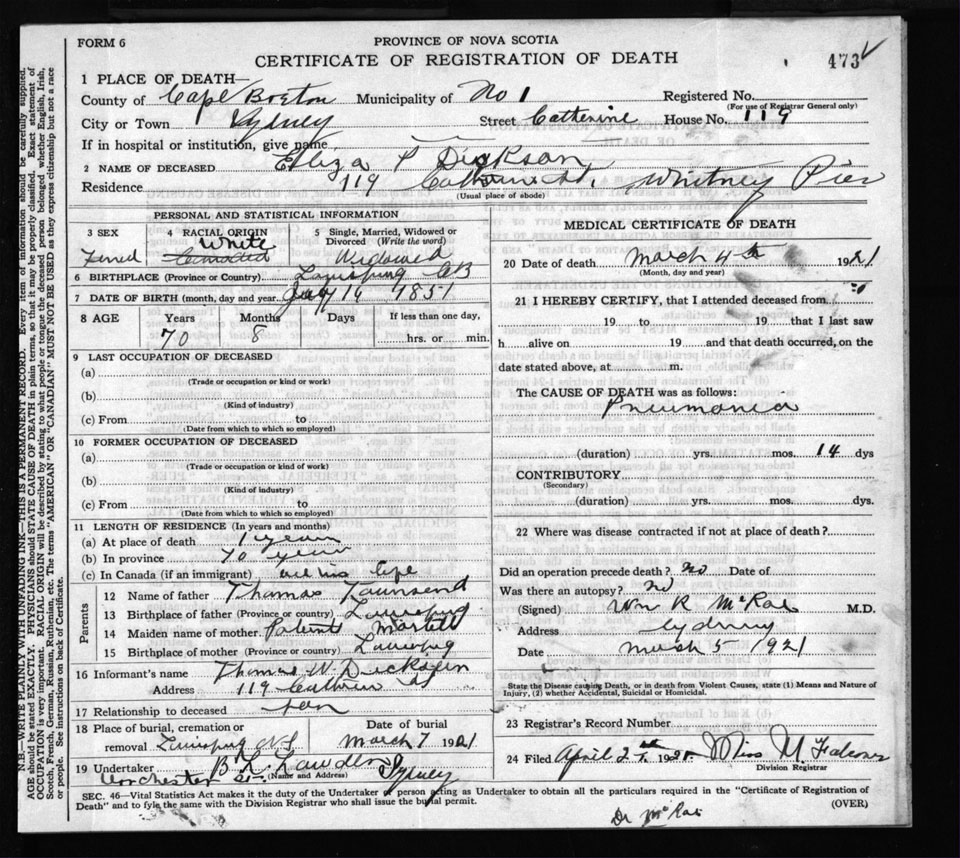 FORM 6
PROVINCE OF NOVA SCOTIA
CERTIFICATE OF REGISTRATION OF DEATH
473
1 PLACE OF DEATH—
County of Cape Breton Municipality of No 1 Registered No.
(For use of Registrar General only)
City or Town Sydney Street Catherine House No. 119
If in hospital or institution, give name
2 NAME OF DECEASED Eliza Dickson
Residence 119 Catherine St. Whitney Pier
(Usual place of abode)
PERSONAL AND STATISTICAL INFORMATION
3 SEX
4 RACIAL ORIGIN
5 Single, Married, Widowed or Divorced (Write the word)
White
Widowed
6 BIRTHPLACE (Province or Country) CB
7 DATE OF BIRTH (month, day and year) 1851
8 AGE Years Months Days If less than one day,
70 8 hrs. or min.
9 LAST OCCUPATION OF DECEASED
(a)
(Trade or occupation or kind or work)
(b)
(Kind of industry)
(c) From to
(Date from which to which so employed)
10 FORMER OCCUPATION OF DECEASED
(a)
(Trade or occupation or kind of work)
(b)
(Kind of industry)
(c) From to
(Date from which to which so employed)
11 LENGTH OF RESIDENCE (In years and months)
(a) At place of death 1 year
(b) In province 70 year
(c) In Canada (if an immigrant)
Parents
12 Name of father Thomas Townsend
13 Birthplace of father (Province or country)
14 Maiden name of mother Martell
15 Birthplace of mother (Province or Country)
16 Informant's name Thomas W. Dickson
Address 119 Cathrin St
17 Relationship to deceased
18 Place of burial, cremation or removal N.S Date of burial March 7 1921
19 Undertaker
(Name and Address) Sydney
MEDICAL CERTIFICATE OF DEATH
20 Date of death March 4th 1921
(Month, day and year)
21 I HEREBY CERTIFY, that I attended deceased from
19 to 19 that I last saw
h alive on 19 and that death occurred, on the
date stated above, at m.
The CAUSE OF DEATH was as follows:
Pneumonia
(duration) yrs. mos. 14 dys
CONTRIBUTORY
(Secondary)
(duration) yrs. mos. dys.
22 Where was disease contracted if not at place of death?
Did an operation precede death? No Date of
Was there an autopsy? No
(Signed) Wm R McRae M.D.
Address Sydney
Date March 5 1921
State the Disease causing Death, or in death from Violent Causes, state (1) Means and Nature of
Injury, (2) whether Accidental, Suicidal or Homicidal.
23 Registrar's Record Number
24 Filed April 2 Miss M.
Division Registrar
SEC. 46—Vital Statistics Act makes it the duty of the Undertaker or person acting as Undertaker to obtain all the particulars required in the "Certificate of Registration of
Death" and to fyle the same with the Division Registrar who shall issue the burial permit.
(OVER)
Dr McRae
N.B.—WRITE PLAINLY WITH UNFADING INK—THIS IS A PERMANENT RECORD. Every item of information should be carefully supplied.
AGE should be stated EXACTLY. PHYSICIANS should STATE CAUSE OF DEATH in plain terms, so that it may be properly classified. Exact statement of
OCCUPATION is very important. RACIAL ORIGIN will be described by stating to what people or tongue the deceased person belonged, whether English, Irish,
Scotch, French, German, Russian, Ruthenian, etc. The terms "AMERICAN" OR "CANADIAN" MUST NOT BE USED as they express citizenship but not a race
or people. See instructions on back of Certificate.